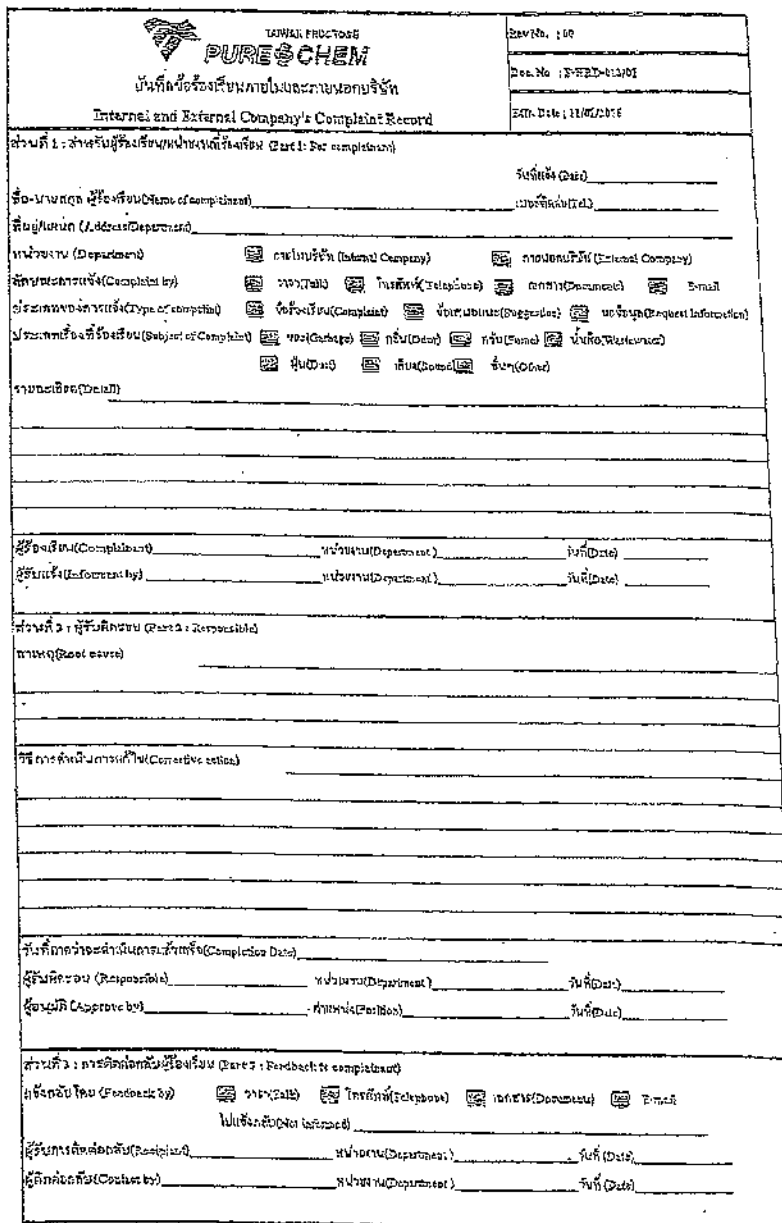 TAIWAN FRUCTOSE
PURE CHEM
บันทึกข้อร้องเรียนภายในและภายนอกบริษัท
Internal and External Company's Complaint Record
Rev No. : 00
Doc. No :
Eff. Date :
ส่วนที่ 1 : สำหรับผู้ร้องเรียน/หน่วยงานที่ร้องเรียน (Part 1: For complainant)
วันที่แจ้ง (Date)
ชื่อ-นามสกุล ผู้ร้องเรียน(Name of complainant) เบอร์ติดต่อ(Tel.)
ที่อยู่/แผนก (Address/Department)
หน่วยงาน (Department) ภายในบริษัท (Internal Company) ภายนอกบริษัท (External Company)
ลักษณะการแจ้ง(Complaint by) วาจา(Talk) โทรศัพท์(Telephone) เอกสาร(Documents) E-mail
ประเภทของการแจ้ง(Type of complaint) ข้อร้องเรียน(Complaint) ข้อเสนอแนะ(Suggestion) ขอข้อมูล(Request Information)
ประเภทเรื่องที่ร้องเรียน(Subject of Complaint) ขยะ(Garbage) กลิ่น(Odor) ควัน(Fume) น้ำเสีย(Wastewater)
ฝุ่น(Dust) เสียง(Sound) อื่นๆ(Other)
รายละเอียด(Detail)
ผู้ร้องเรียน(Complainant) หน่วยงาน(Department) วันที่(Date)
ผู้รับแจ้ง(Informent by) หน่วยงาน(Department) วันที่(Date)
ส่วนที่ 2 : ผู้รับผิดชอบ (Part 2 : Responsible)
สาเหตุ(Root cause)
วิธีการดำเนินการแก้ไข(Corrective action)
วันที่คาดว่าจะดำเนินการแล้วเสร็จ(Completion Date)
ผู้รับผิดชอบ (Responsible) หน่วยงาน(Department) วันที่(Date)
ผู้อนุมัติ (Approve by) ตำแหน่ง(Position) วันที่(Date)
ส่วนที่ 3 : การติดต่อกลับผู้ร้องเรียน (Part 3 : Feedback to complainant)
แจ้งกลับโดย (Feedback by) วาจา(Talk) โทรศัพท์(Telephone) เอกสาร(Documents) E-mail
ไม่แจ้งกลับ(Not informed)
ผู้รับการติดต่อกลับ(Recipient) หน่วยงาน(Department) วันที่ (Date)
ผู้ติดต่อกลับ(Contact by) หน่วยงาน(Department) วันที่ (Date)